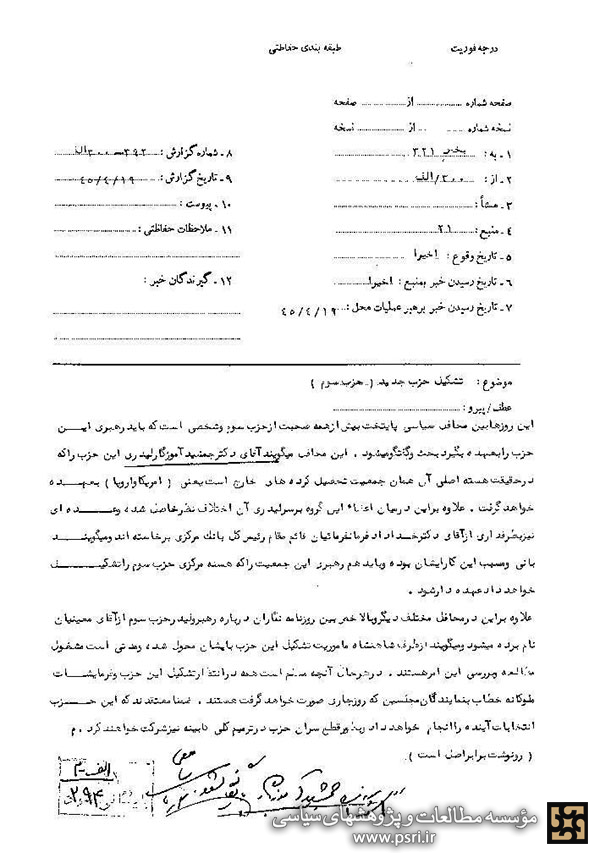 درجه فوریت
طبقه بندی حفاظتی
صفحه شماره ............ از ............ صفحه
نسخه شماره ............ از ............ نسخه
۱ـ به : بخش ۳۲۱
۲ـ از : ۳۰۰/الف
۳ـ منشأ :
۴ـ منبع : ۲۱
۵ـ تاریخ وقوع : اخیرا
۶ـ تاریخ رسیدن خبر بمنبع : اخیرا
۷ـ تاریخ رسیدن خبر برهبر عملیات محل : ۴۵/۴/۱۹
۸ـ شماره گزارش : ۳۹۲ـ۳۰۰ الف
۹ـ تاریخ گزارش : ۴۵/۴/۱۹
۱۰ـ پیوست :
۱۱ـ ملاحظات حفاظتی :
۱۲ـ گیرندگان خبر :
موضوع : تشکیل حزب جدید ( ـ حزب سوم )
عطف/پیرو :
این روزها بین محافل سیاسی پایتخت بیش از همه صحبت از حزب سوم و شخصی است که باید رهبری ایـن
حزب را بعهده بگیرد بحث و گفتگو میشود . این محافل میگویند آقای دکتر جمشید آموزگار لیدری این حزب را که
در حقیقت هسته اصلی آن همان جمعیت تحصیل کرده های خارج است یعنی ( امریکا و اروپا ) بعهـده
خواهد گرفت . علاوه بر این در میان اعضاء این گروه بر سر لیدری آن اختلاف نظر حاصل شده و عـده ای
نیز بطرفداری از آقای دکتر خداداد فرمانفرمائیان قائم مقام رئیس کل بانک مرکزی برخاسته اند و میگوینـد
بانی و مسبب این کار ایشان بوده و باید هم رهبری این جمعیت را که هسته مرکزی حزب سوم را تشکیـل
خواهد داد عهده دار شود .
علاوه بر این در محافل مختلف دیگر و بالاخص بین روزنامه نگاران درباره رهبر و لیدر حزب سوم از آقای معینیان
نام برده میشود و میگویند از طرف شاهنشاه ماموریت تشکیل این حزب بایشان محول شده و مدتی است مشغول
مطالعه و بررسی این امر هستند . در هر حال آنچه مسلم است همه در انتظار تشکیل این حزب و فرمایشـات
ملوکانه خطاب بنمایندگان مجلسین که روز جاری صورت خواهد گرفت هستند . ضمنا معتقدند که این حـزب
انتخابات آینده را انجام خواهد داد و بطور قطع سران حزب در ترمیم کلی کابینه نیز شرکت خواهند کرد . م
( رونوشت برابر اصل است ) .
الف ـ م
۲۹۴
مؤسسه مطالعات و پژوهشهای سیاسی
www.psri.ir